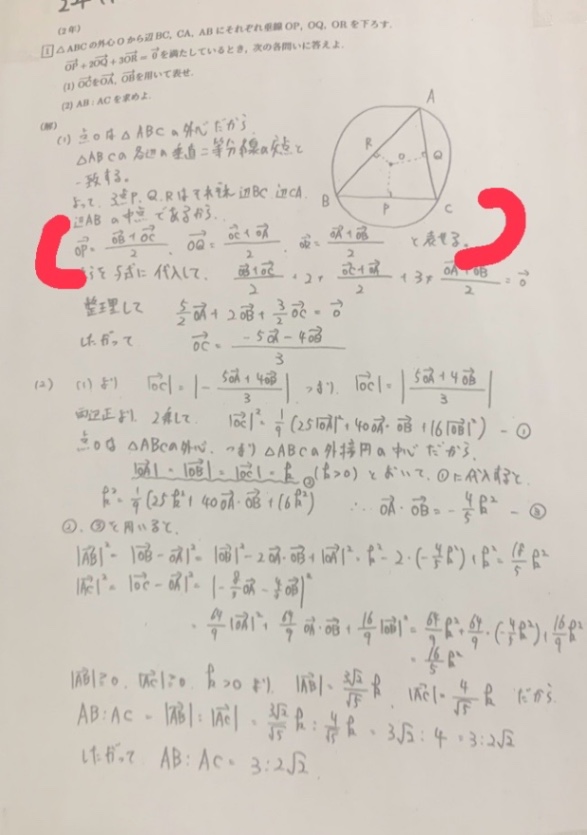 (2年)
1 △ABCの外心Oから辺BC, CA, ABにそれぞれ垂線OP, OQ, ORを下ろす.
OP→+2OQ→+3OR→=0→を満たしているとき, 次の各問いに答えよ.
(1) OC→をOA→, OB→を用いて表せ.
(2) AB : ACを求めよ.
(解)
(1) 点Oは△ABCの外心だから
△ABCの各辺の垂直二等分線の交点と
一致する。
よって、3点P, Q, Rはそれぞれ辺BC 辺CA,
辺ABの中点であるから、
OP→ = (OB→+OC→)/2 , OQ→ = (OC→+OA→)/2 , OR→ = (OA→+OB→)/2 と表せる。
を与式に代入して、 (OB→+OC→)/2 + 2・(OC→+OA→)/2 + 3・(OA→+OB→)/2 = 0→
整理して 5/2 OA→ + 2OB→ + 3/2 OC→ = 0→
したがって OC→ = (-5OA→-4OB→)/3
A
R
O
Q
B
P
C
(2) (1)より |OC→| = |-(5OA→+4OB→)/3| つまり |OC→| = |(5OA→+4OB→)/3|
両辺正より、2乗して |OC→|² = 1/9 (25|OA→|²+40OA→・OB→+16|OB→|²) -①
点Oは△ABCの外心、つまり△ABCの外接円の中心だから、
|OA→| = |OB→| = |OC→| = k ② (k>0) とおいて、①に代入すると
k² = 1/9 (25k²+40OA→・OB→+16k²) ∴ OA→・OB→ = -4/5 k² -③
②, ③を用いると、
|AB→|² = |OB→-OA→|² = |OB→|²-2OA→・OB→+|OA→|² = k²-2・(-4/5 k²)+k² = 18/5 k²
|AC→|² = |OC→-OA→|² = |-8/3 OA→-4/3 OB→|²
= 64/9 |OA→|² + 64/9 OA→・OB→ + 16/9 |OB→|² = 64/9 k² + 64/9・(-4/5 k²) + 16/9 k²
= 16/5 k²
|AB→|≧0, |AC→|≧0, k>0より |AB→| = 3√2/√5 k, |AC→| = 4/√5 k だから
AB:AC = |AB→|:|AC→| = 3√2/√5 k : 4/√5 k = 3√2:4 = 3:2√2
したがって AB:AC = 3:2√2